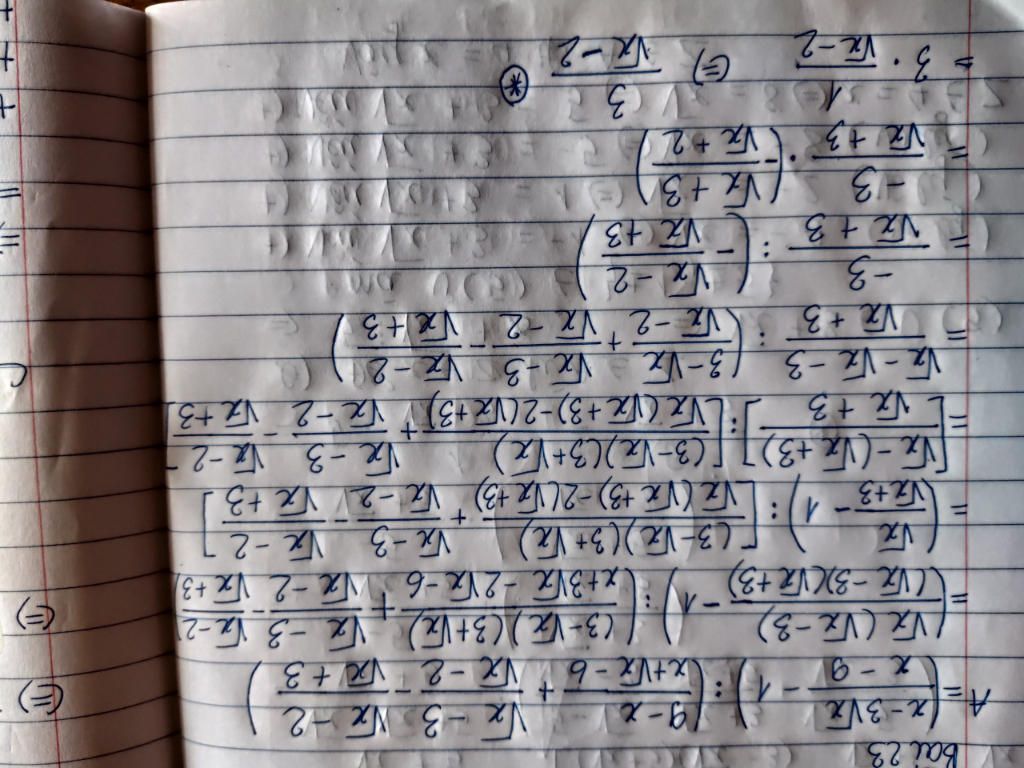 Bài 23
A = ( (x - 3√x)/(x - 9) - 1 ) : ( (9 - x)/(x + √x - 6) + (√x - 3)/(√x - 2) - (√x - 2)/(√x + 3) )
= ( (√x (√x - 3))/((√x - 3)(√x + 3)) - 1 ) : ( ((3 - √x)(3 + √x))/(x + 3√x - 2√x - 6) + (√x - 3)/(√x - 2) - (√x - 2)/(√x + 3) )
= ( √x/(√x + 3) - 1 ) : [ ((3 - √x)(3 + √x))/(√x (√x + 3) - 2(√x + 3)) + (√x - 3)/(√x - 2) - (√x - 2)/(√x + 3) ]
= [ (√x - (√x + 3))/(√x + 3) ] : [ ((3 - √x)(3 + √x))/(√x (√x + 3) - 2(√x + 3)) + (√x - 3)/(√x - 2) - (√x - 2)/(√x + 3) ]
= (√x - √x - 3)/(√x + 3) : ( (3 - √x)/(√x - 2) + (√x - 3)/(√x - 2) - (√x - 2)/(√x + 3) )
= -3/(√x + 3) : ( - (√x - 2)/(√x + 3) )
= -3/(√x + 3) · ( - (√x + 3)/(√x + 2) )
= 3 · 1/(√x - 2) (=) 3/(√x - 2) (*)
(=)
(=)